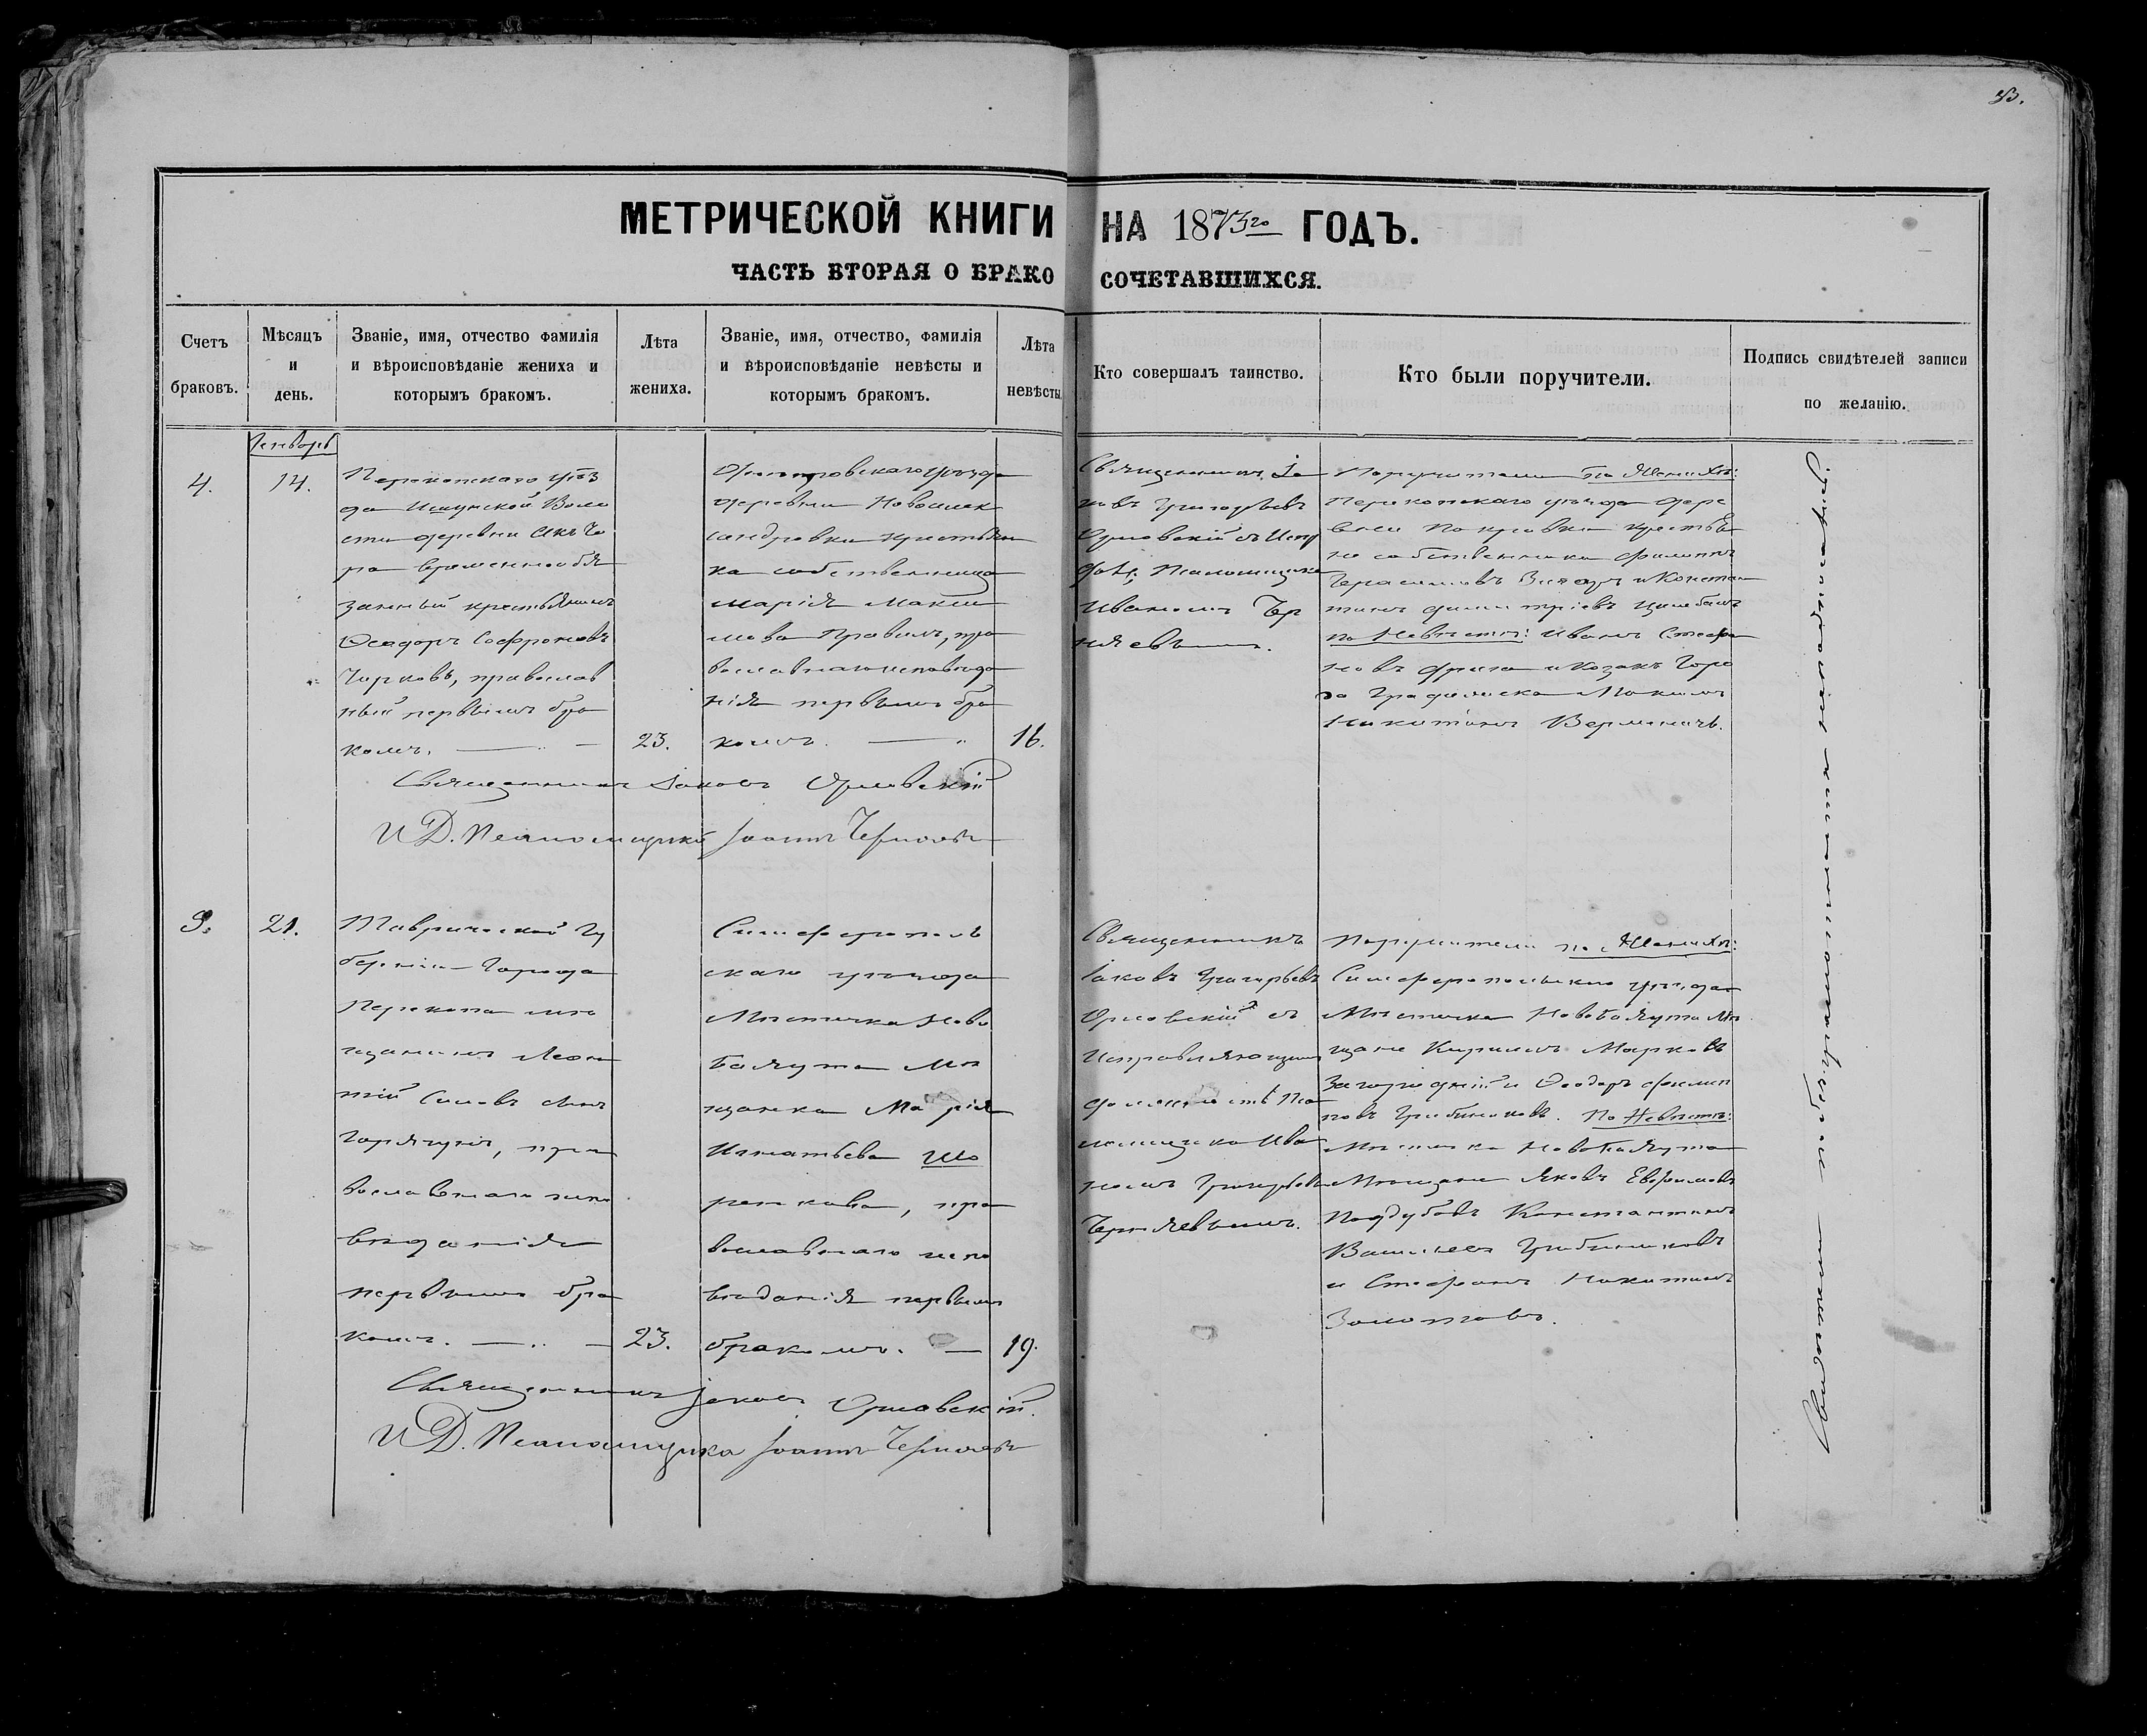 МЕТРИЧЕСКОЙ КНИГИ НА 1873го ГОДЪ.
ЧАСТЬ ВТОРАЯ О БРАКОСОЧЕТАВШИХСЯ.
Счетъ браковъ.
Мѣсяцъ и день.
Званіе, имя, отчество фамилія
и вѣроисповѣданіе жениха и
которымъ бракомъ.
Лѣта
жениха.
Званіе, имя, отчество, фамилія
и вѣроисповѣданіе невѣсты и
которымъ бракомъ.
Лѣта
невѣсты
Кто совершалъ таинство.
Кто были поручители.
Подпись свидѣтелей записи
по желанію.
Генворь
4.
14.
Перекопскаго уѣз
да Ишунской Воло
сти деревни
временнообя
занный крестьянинъ
Ѳеодоръ Софроновъ
православ
ный первымъ бра
комъ.
23.
Днепровскаго уѣзда
деревни Новоалек
сандровки крестьян
ка собственница
Марія Макси
мова пра
вославнаго исповѣда
нія первымъ бра
комъ.
16.
Священникъ Іа
ковъ Григорьевъ
Орловскій съ
Псаломщика
Иваномъ Чер
няевымъ.
Поручители по Женихѣ:
Перекопскаго уѣзда дере
вни Покровки крестья
не собственники Филиппъ
Герасимовъ и Констан
тинъ Димитріевъ
по Невѣстѣ: Иванъ Стефа
новъ и Козакъ Горо
да Градижска
Никитинъ
Священникъ Іаковъ Орловскій
И Д. Псаломщика Іоаннъ Черняевъ
5.
21.
Таврической Гу
берніи Города
Перекопа мѣ
щанинъ Леон
тій
пра
вославнаго испо
вѣданія
первымъ бра
комъ.
23.
Симферополь
скаго уѣзда
Мѣстечка Ново
Баяута Мѣ
щанка Марія
Игнатьева
пра
вославнаго испо
вѣданія первымъ
бракомъ.
19.
Священникъ
Іаковъ Григорьевъ
Орловскій съ
Исправляющимъ
должность Пса
ломщика Ива
номъ Григорьев
Черняевымъ.
Поручители по Женихѣ:
Симферопольскаго уѣзда
Мѣстечка НовоБаяута Мѣ
щане Кириллъ Марковъ
Загородній и Ѳеодоръ Филип
повъ Грибиниковъ. По Невѣстѣ:
Мѣстечка НовоБаяута
Мѣщане Яковъ Евфимовъ
Поддубовъ Константинъ
Васильевъ Грибиниковъ
и Стефанъ Никитинъ
Золотовъ.
Священникъ Іаковъ Орловскій.
И Д. Псаломщика Іоаннъ Черняевъ
Свидѣтели по безграмотности неподписались.